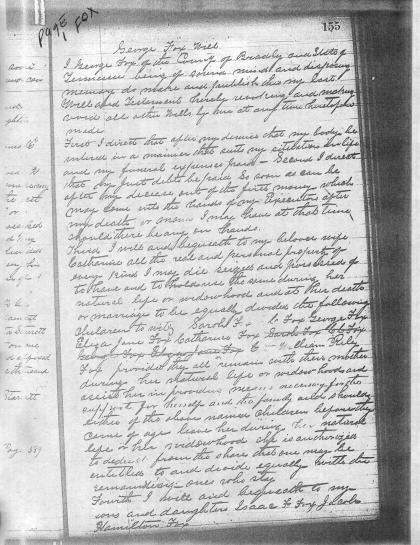 PAGE 1 FOX
155
George Fox Will
I George Fox of the County of Bradly and State of
Tennessee being of sound mind and disposing
memory do make and publish this my last
Will and Testament hereby revoking and making
void all other Wills by me at any time heretofore
made
First I direct that after my demise that my body be
intered in a manner that suits my situation in life
and my funeral expenses paid – Second I direct
that my Just debt be paid So soon as can be
after my decease out of the first money which
may come into the hands of my Executors after
my death or monie I may have at that time
should there be any on hand.
Third I will and bequeath to my beloved wife
Catharine all the real and personal property of
every kind I may die seized and possessed of
to have and to hold use the same during her
natural life or widowhood and at her death
or marriage to be equally divided the following
children to wity Sarah F. Fox George Fox
Eliza Jane Fox Catharine Fox
Fox provided they all remain with their mother
during her natural life or widowhood and
assist her in providing means necessary for the
support for herself and the family and should
either of the above named children
come of age leave her during her natural
life or her widowhood she is authorized
to deduct from the share that one may be
entitled to and divide equally with the
remaining ones who stay
Fourth I will and bequeath to my
sons and daughters Isaac F. Fox Jacob
Hamilton Fox
Page 559